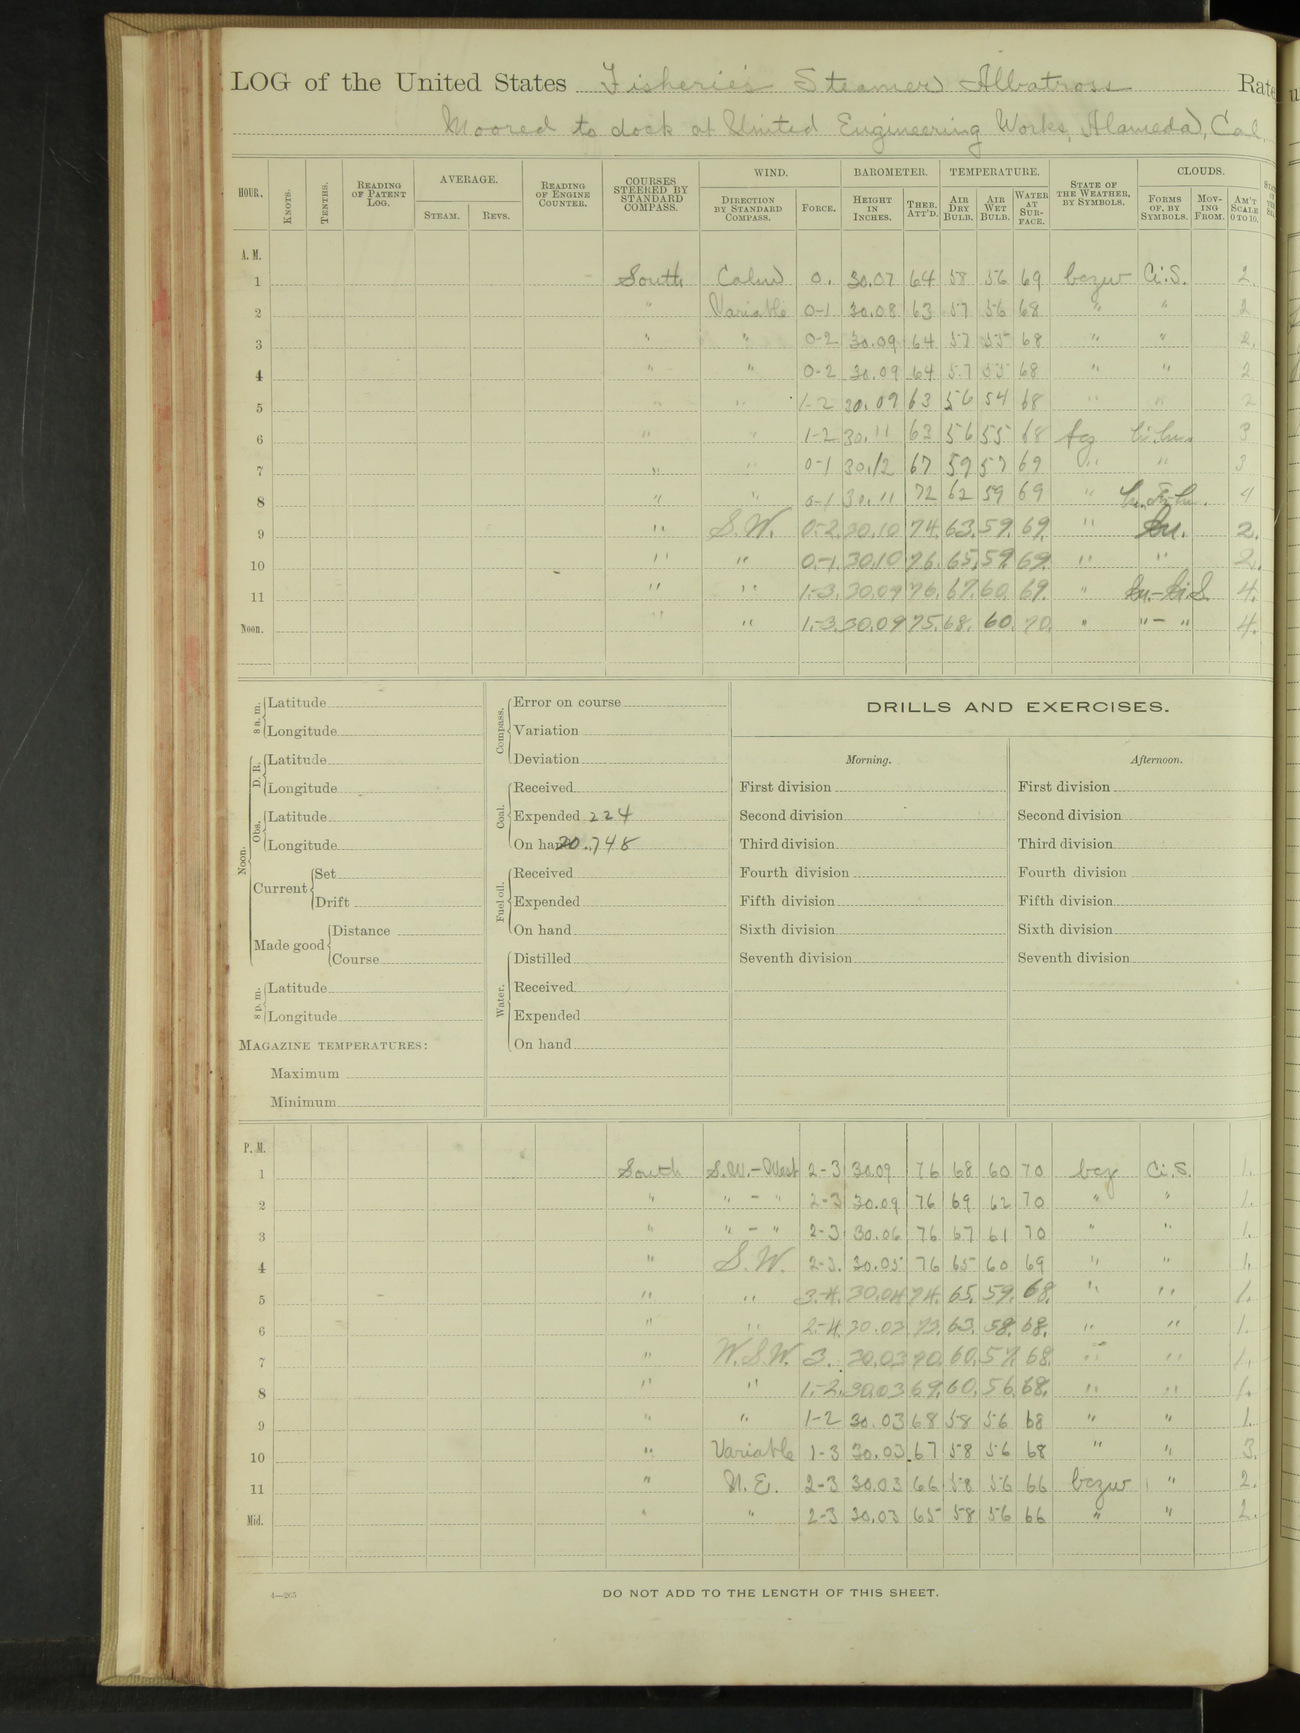 LOG of the United States Fisheries Steamer Albatross Rate
Moored to dock at United Engineering Works, Alameda, Cal.
HOUR. KNOTS. TENTHS. READING OF PATENT LOG. AVERAGE. STEAM. REVS. READING OF ENGINE COUNTER. COURSES STEERED BY STANDARD COMPASS. WIND. DIRECTION BY STANDARD COMPASS. FORCE. BAROMETER. HEIGHT IN INCHES. THER. ATT'D. TEMPERATURE. AIR DRY BULB. AIR WET BULB. WATER AT SURFACE. STATE OF THE WEATHER, BY SYMBOLS. CLOUDS. FORMS OF, BY SYMBOLS. MOVING FROM. AM'T SCALE 0 TO 10.
A. M.
1 South Calm 0. 30.07 64 58 56 69 bczw Ci.S. 2.
2 " Variable 0-1 30.08 63 57 56 68 " " 2
3 " " 0-2 30.09 64 57 55 68 " " 2.
4 " " 0-2 30.09 64 57 55 68 " " 2
5 " " 1-2 30.09 63 56 54 68 " " 2
6 " " 1-2 30.11 63 56 55 68 3
7 " " 0-1 30.12 67 59 57 69 " " 3
8 " " 0-1 30.11 72 62 59 69 " 4
9 " S.W. 0-2. 30.10 74. 63. 59. 69. " 2.
10 " " 0-1. 30.10 76. 65. 59. 69. " " 2.
11 " " 1-3. 30.09 76. 67. 60. 69. " 4.
Noon. " " 1-3. 30.09 75. 68. 60. 70. " " - " 4.
8 a. m. Latitude
Longitude
Noon. D. R. Latitude
Longitude
Obs. Latitude
Longitude
Current Set
Drift
Made good Distance
Course
8 p. m. Latitude
Longitude
MAGAZINE TEMPERATURES:
Maximum
Minimum
Compass. Error on course
Variation
Deviation
Coal. Received
Expended 224
On hand 30.748
Fuel oil. Received
Expended
On hand
Water. Distilled
Received
Expended
On hand
DRILLS AND EXERCISES.
Morning. Afternoon.
First division First division
Second division Second division
Third division Third division
Fourth division Fourth division
Fifth division Fifth division
Sixth division Sixth division
Seventh division Seventh division
P. M.
1 South S.W.-West 2-3 30.09 76 68 60 70 bcz Ci.S. 1.
2 " " - " 2-3 30.09 76 69 62 70 " " 1.
3 " " - " 2-3 30.06 76 67 61 70 " " 1.
4 " S.W. 2-3. 30.05 76 65 60 69 " " 1.
5 " " 3-4. 30.04 74. 65. 59. 68. " " 1.
6 " " 2-4. 30.03 73. 63. 58. 68. " " 1.
7 " W.S.W. 3. 30.03 70. 60. 57. 68. " " 1.
8 " " 1-2. 30.03 69. 60. 56. 68. " " 1.
9 " " 1-2 30.03 68 58 56 68 " " 1.
10 " Variable 1-3 30.03 67 58 56 68 " " 3.
11 " N.E. 2-3 30.03 66 58 56 66 bczw " 2.
Mid. " " 2-3 30.03 65 58 56 66 " " 2.
4—265
DO NOT ADD TO THE LENGTH OF THIS SHEET.